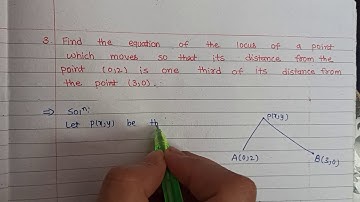 3. Find the equation of the locus of a point
which moves so that its distance from the
point (0,2) is one third of its distance from
the point (3,0).
⇒ Solⁿ:
Let P(x,y) be th
P(x,y)
A(0,2)
B(3,0)